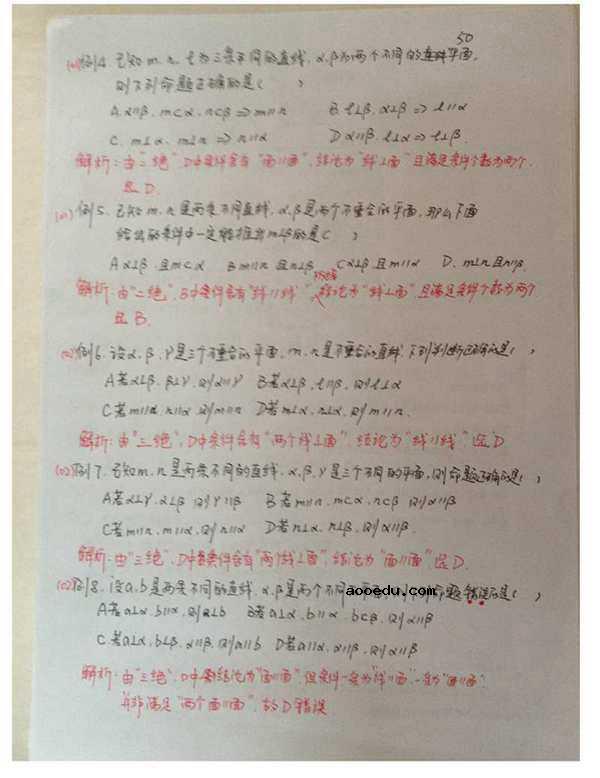 50
例4. 已知m、n、l为三条不同的直线，α、β为两个不同的平面，
则下列命题正确的是（　）
A. α∥β, m⊂α, n⊂β ⇒ m∥n　B. l⊥β, α⊥β ⇒ l∥α
C. m⊥α, m⊥n ⇒ n∥α　D α∥β, l⊥α ⇒ l⊥β.
解析：由“三绝”，D中条件含有“面∥面”，结论为“线⊥面”且满足条件个数为两个.
选D.
例5. 已知m、n是两条不同直线，α、β是两个不重合的平面，那么下面
给出的条件中一定能推出m⊥β的是（　）
A α⊥β, 且m⊂α　B m∥n 且n⊥β　C α⊥β 且m∥α　D. m⊥n 且n∥β.
解析：由“二绝”，B中条件含有“线∥线”，结论为“线⊥面”且满足条件个数为两个
选B.
例6. 设α、β、γ是三个不重合的平面，m、n是不重合的直线，下列判断正确的是（　）
A若α⊥β, β⊥γ, 则α∥γ　B若α⊥β, l∥β, 则l⊥α
C若m∥α, n∥α, 则m∥n　D若m⊥α, n⊥α, 则m∥n.
解析：由“三绝”，D中条件含有“两个线⊥面”，结论为“线∥线”，选D
例7. 已知m、n是两条不同的直线，α、β、γ是三个不同的平面，则命题正确的是（　）
A若α⊥γ, α⊥β 则γ∥β　B若m∥n, m⊂α, n⊂β, 则α∥β
C若m∥n, m∥α, 则n∥α　D若n⊥α, n⊥β, 则α∥β.
解析：由“三绝”，D中条件含有“两个线⊥面”，结论为“面∥面”，选D.
例8. 设a、b是两条不同的直线，α、β是两个不同平面，则 命题错误的是（　）
aooedu.com
A若a⊥α, b∥α, 则a⊥b　B若a⊥α, b∥a, b⊂β, 则α⊥β
C. 若a⊥α, b⊥β, α∥β, 则a∥b　D若a∥α, α∥β, 则a∥β
解析：由“三绝”，D中 结论为“面∥面”，但条件一 为“线∥面”，一 为“面∥面”
并非满足“两个面∥面”，故D错误.